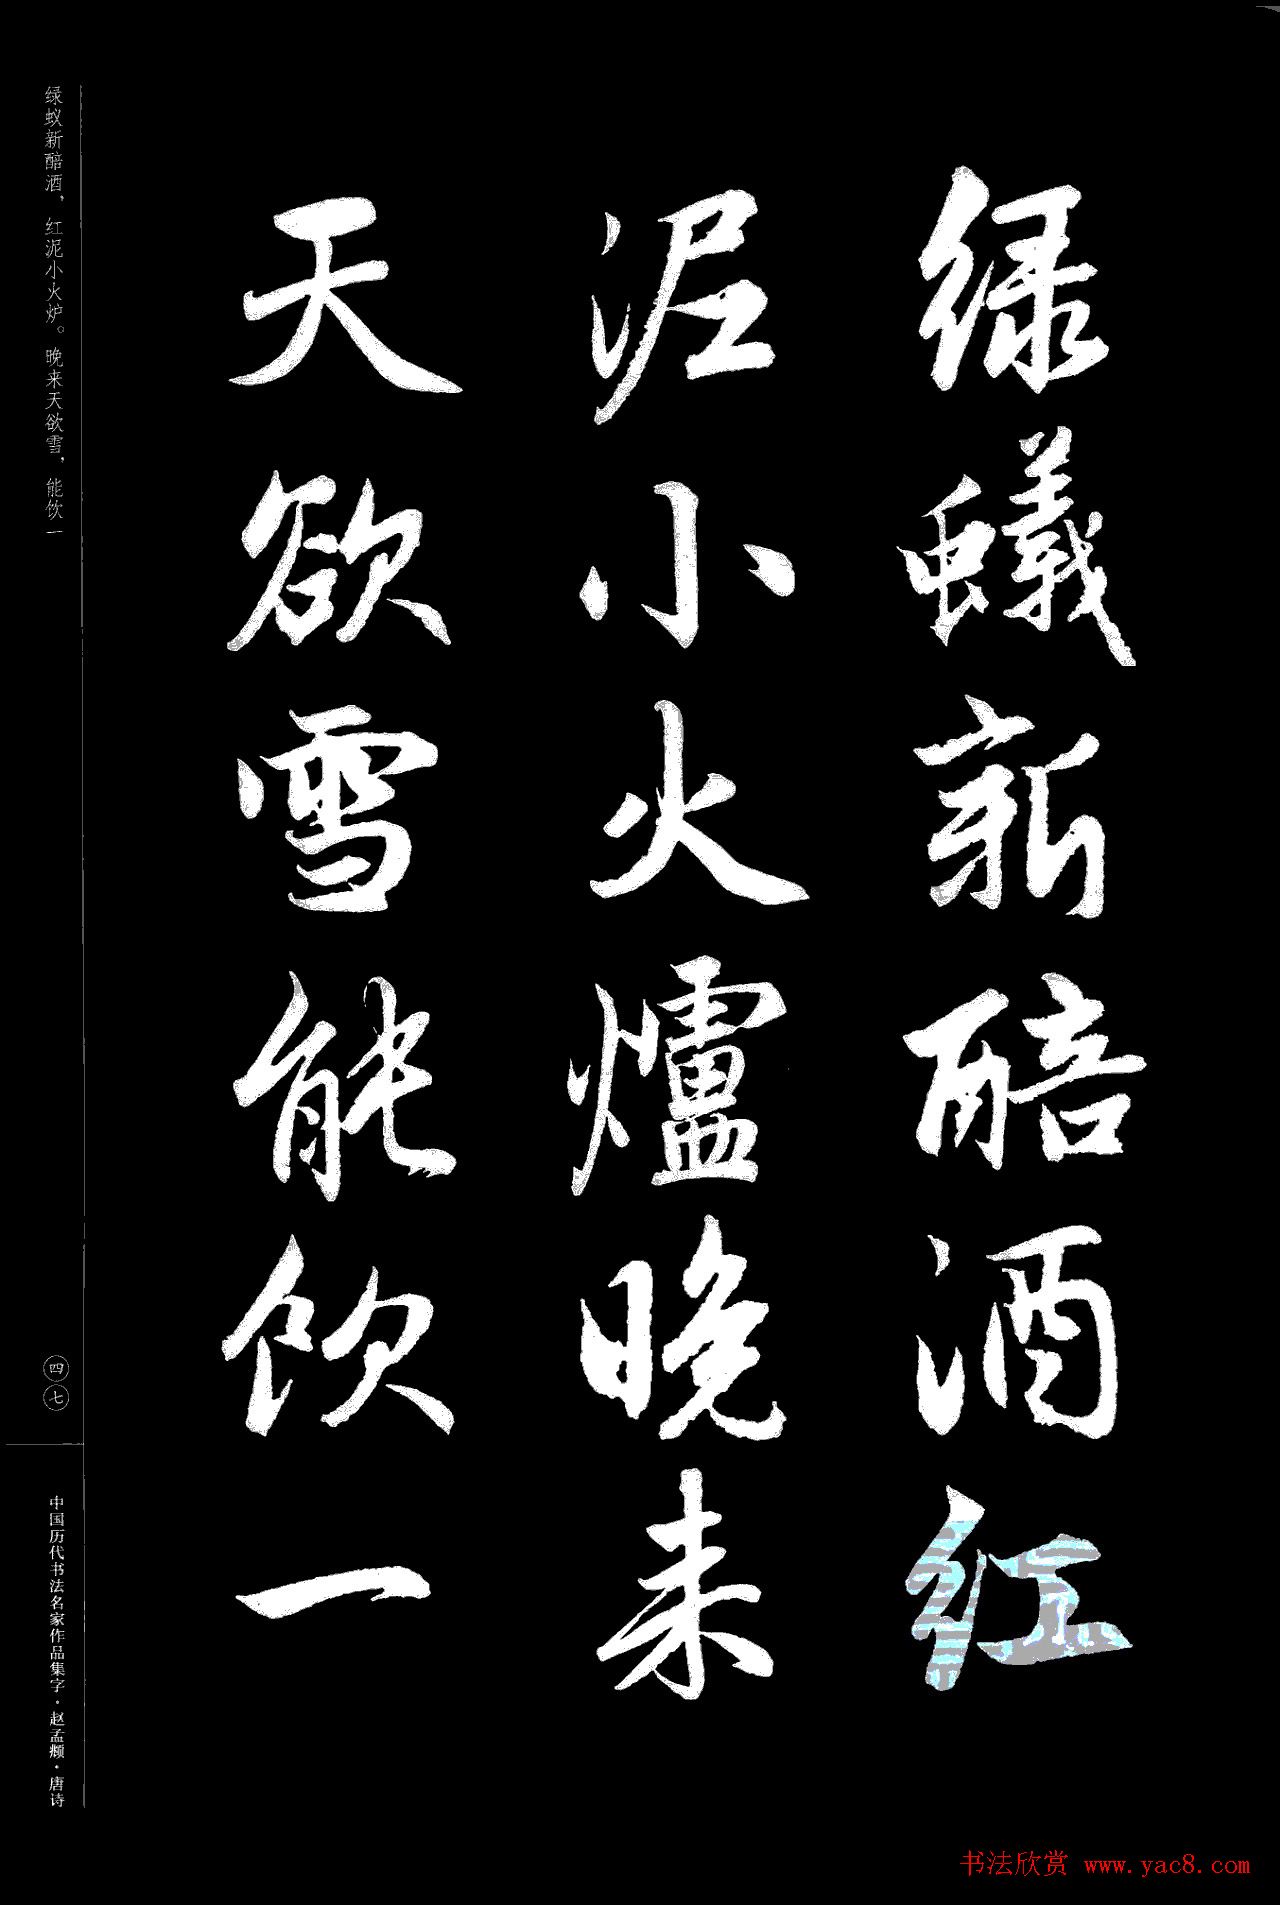 绿蟻新醅酒红
泥小火爐晚来
天欲雪能饮一
绿蚁新醅酒，红泥小火炉。晚来天欲雪，能饮一
四七
中国历代书法名家作品集字·赵孟頫·唐诗
书法欣赏 www.yac8.com